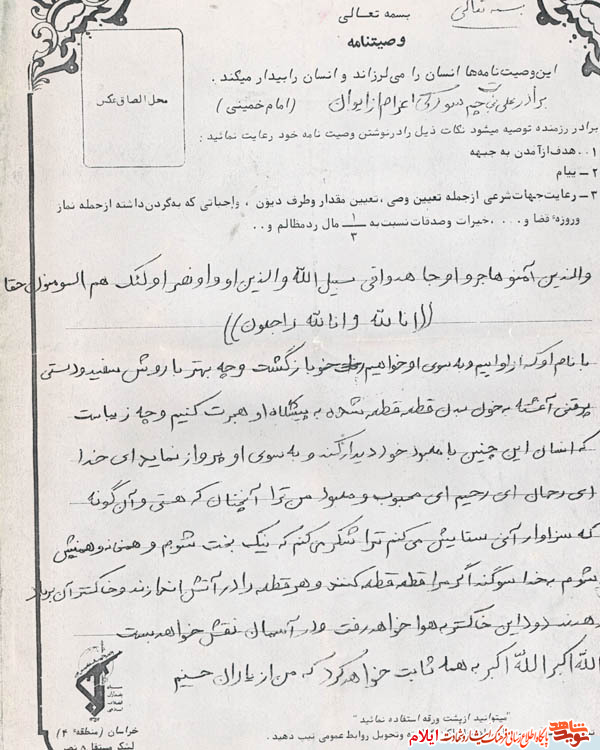 بسمه تعالی
بسمه تعالی
وصیتنامه
محل الصاق عکس
این وصیت نامه‌ها انسان را می‌لرزاند و انسان را بیدار میکند.
(امام خمینی)
برادر علی اعزام از ایوان
برادر رزمنده توصیه میشود نکات ذیل را در نوشتن وصیت نامه خود رعایت نمائید:
۱ـ هدف از آمدن به جبهه
۲ـ پیام
۳ـ رعایت جهات شرعی از جمله تعیین وصی، تعیین مقدار و طرف دیون، واجباتی که به گردن داشته از جمله نماز
و روزه قضا و ...، خیرات و صدقات نسبت به ۱/۳ مال رد مظالم و ..
والذین آمنو هاجرو او جاهدوا فی سبیل الله والذین اووا و نصرو اولئک هم المومنون حقا
((انا لله و انا لله راجعون))
با نام او که از اوایم و به سوی او خواهیم بازگشت و چه بهتر با روش سفید و دستی
پر قتی آغشته به خون بدن قطعه قطعه شده به پیشگاه او هجرت کنیم و چه زیباست
که انسان این چنین با معبود خود دیدار کند و به سوی او پرواز نماید ای خدا
ای رحمان ای رحیم ای محبوب و معبود من ترا آنچنان که هستی و آن گونه
که سزاوار آنی ستایش می کنم ترا شکر می کنم که نیک بخت شوم و همنشین
بشوم به خدا سوگند اگر مرا قطعه قطعه کنند و هر قطعه را در آتش اندازند و خاکستر آن بر باد
دهند دود این خاکستر به هوا خواهد رفت و در آسمان نقش خواهد بست
الله اکبر الله اکبر به همه ثابت خواهد کرد که من از یاران حسینم
"میتوانید از پشت ورقه استفاده نمائید"
خراسان (منطقه ۴)
و تحویل روابط عمومی تیپ دهید.
نوید شاهد
پایگاه اطلاع رسانی فرهنگ ایثار و شهادت ایلام